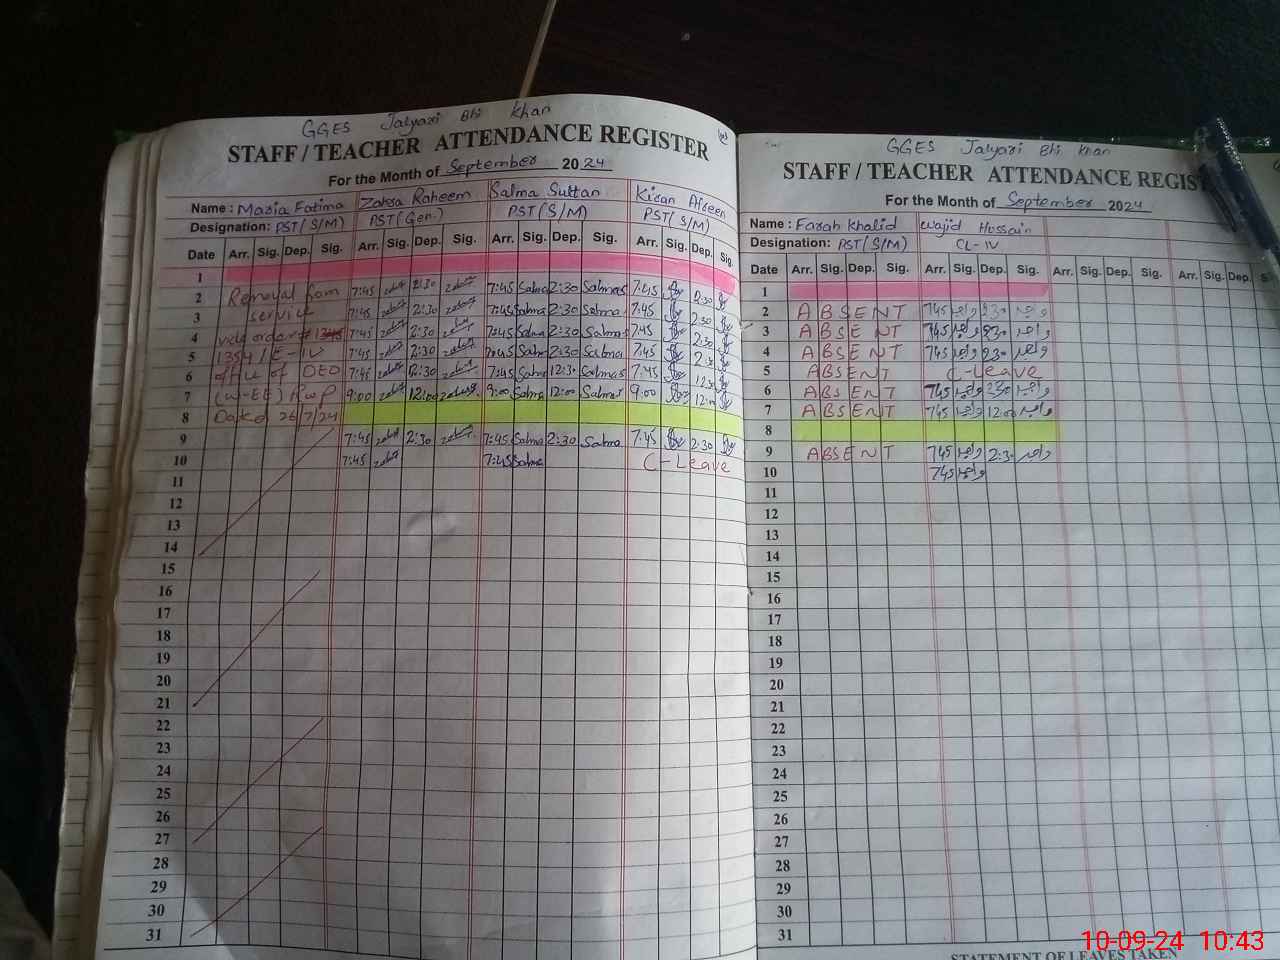 GGES Jalyari Bhi Khan
STAFF / TEACHER ATTENDANCE REGISTER
For the Month of September 2024
Name : Maria Fatima Zahra Raheem Salma Sultan Kiran Afreen
Designation: PST (S/M) PST (Gen.) PST (S/M) PST (S/M)
Date Arr. Sig. Dep. Sig. Arr. Sig. Dep. Sig. Arr. Sig. Dep. Sig. Arr. Sig. Dep. Sig.
1
2 Removal from 7:45 2:30 7:45 Salma 2:30 Salma 7:45 2:30
3 service 7:45 2:30 7:45 Salma 2:30 Salma 7:45 2:30
4 vide order # 7:45 2:30 7:45 Salma 2:30 Salma 7:45 2:30
5 1354/E-IV 7:45 2:30 7:45 Salma 2:30 Salma 7:45 2:30
6 office of DEO 7:45 12:30 7:45 Salma 12:30 Salma 7:45 12:30
7 (W-EE) RWP 9:00 12:00 9:00 Salma 12:00 Salma 9:00 12:00
8 Dated 26/7/24
9 7:45 2:30 7:45 Salma 2:30 Salma 7:45 2:30
10 7:45 7:45 Salma C-Leave
11
12
13
14
15
16
17
18
19
20
21
22
23
24
25
26
27
28
29
30
31
GGES Jalyari Bhi Khan
STAFF / TEACHER ATTENDANCE REGIST
For the Month of September 2024
Name : Farah Khalid Wajid Hussain
Designation: PST (S/M) CL-IV
Date Arr. Sig. Dep. Sig. Arr. Sig. Dep. Sig. Arr. Sig. Dep. Sig. Arr. Sig. Dep.
1
2 ABSENT 745 واجد 230 واجد
3 ABSENT 745 واجد 230 واجد
4 ABSENT 745 واجد 230 واجد
5 ABSENT C-Leave
6 ABSENT 745 واجد 230 واجد
7 ABSENT 745 واجد 1200 واجد
8
9 ABSENT 745 واجد 2:30 واجد
10 745 واجد
11
12
13
14
15
16
17
18
19
20
21
22
23
24
25
26
27
28
29
30
31
STATEMENT OF LEAVES TAKEN
10-09-24 10:43